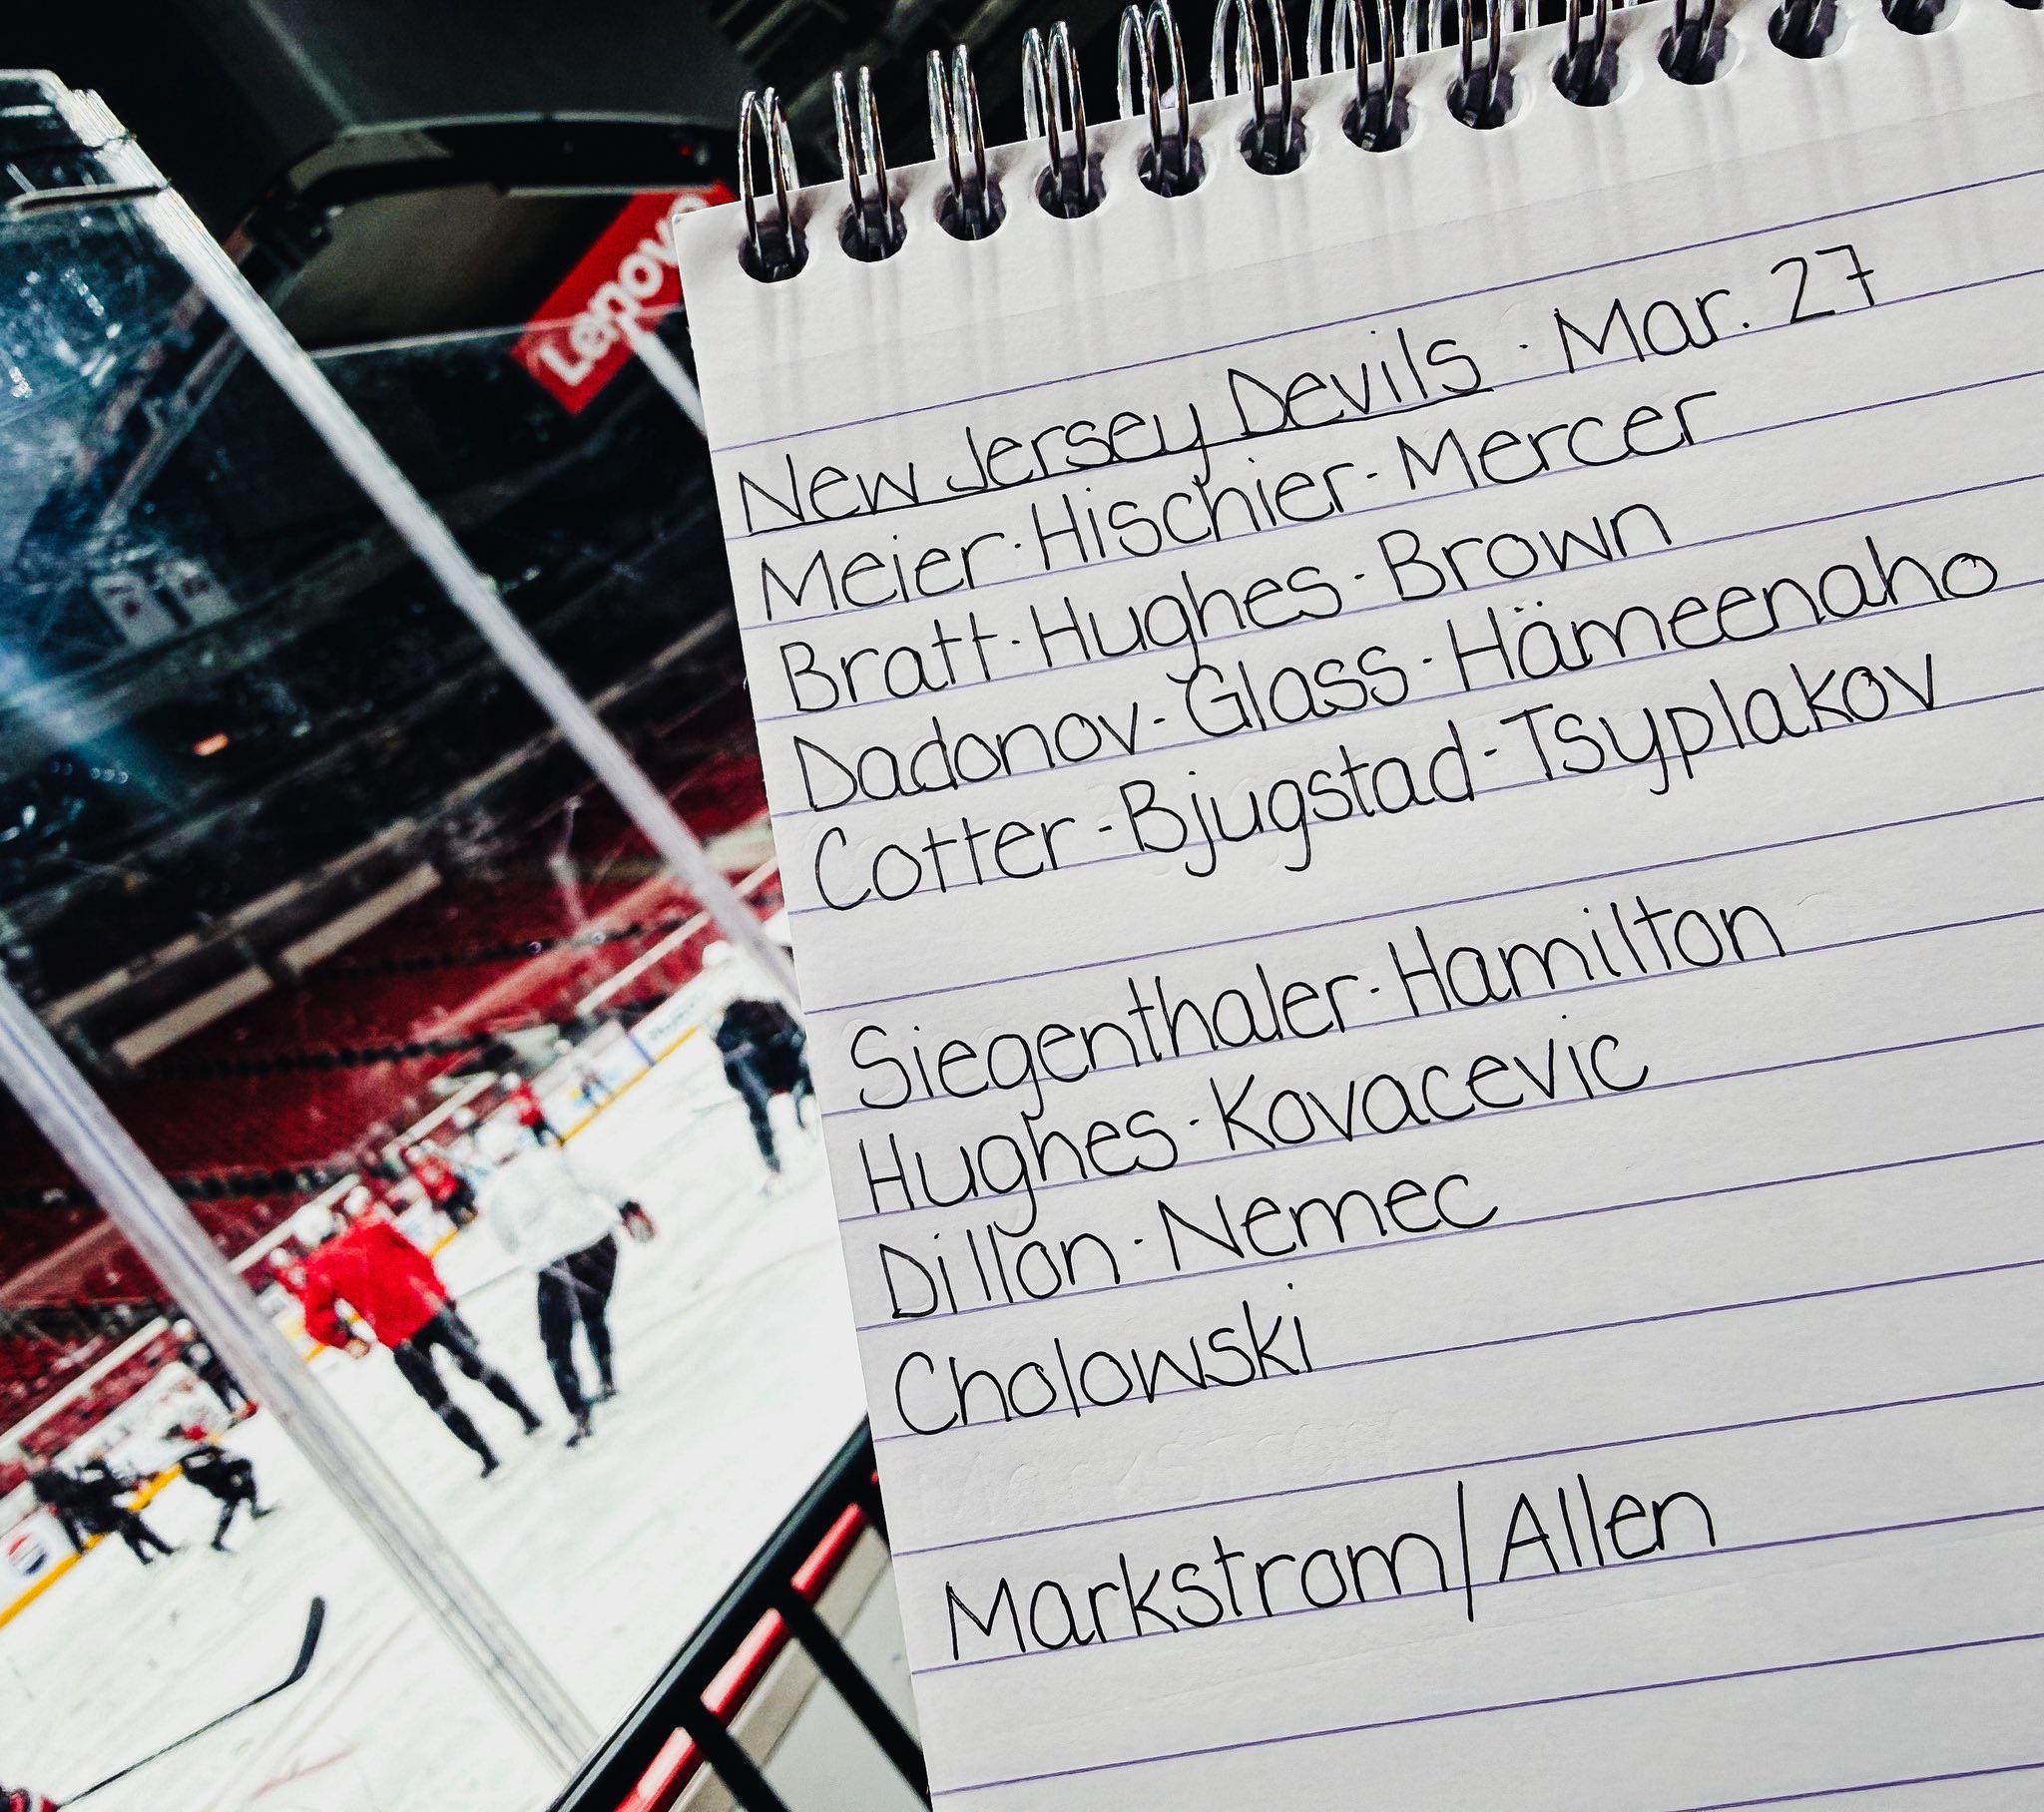 Lenovo
New Jersey Devils · Mar. 27
Meier · Hischier · Mercer
Bratt · Hughes · Brown
Dadonov · Glass · Hämeenaho
Cotter · Bjugstad · Tsyplakov
Siegenthaler · Hamilton
Hughes · Kovacevic
Dillon · Nemec
Cholowski
Markstrom/Allen